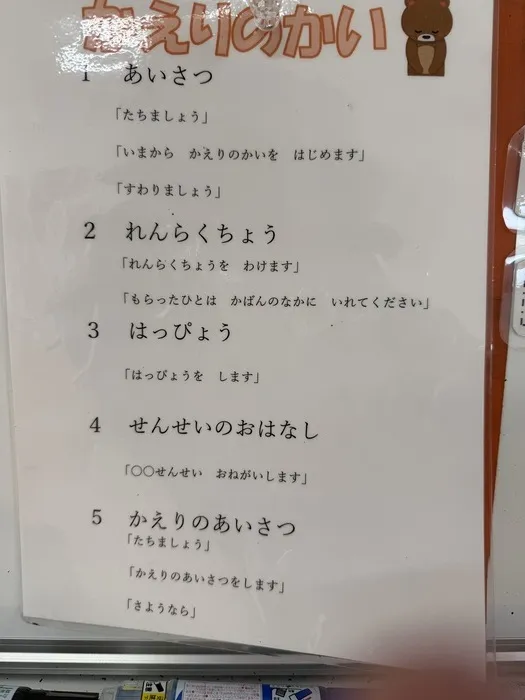 かえりのかい
1 あいさつ
「たちましょう」
「いまから かえりのかいを はじめます」
「すわりましょう」
2 れんらくちょう
「れんらくちょうを わけます」
「もらったひとは かばんのなかに いれてください」
3 はっぴょう
「はっぴょうを します」
4 せんせいのおはなし
「〇〇せんせい おねがいします」
5 かえりのあいさつ
「たちましょう」
「かえりのあいさつをします」
「さようなら」